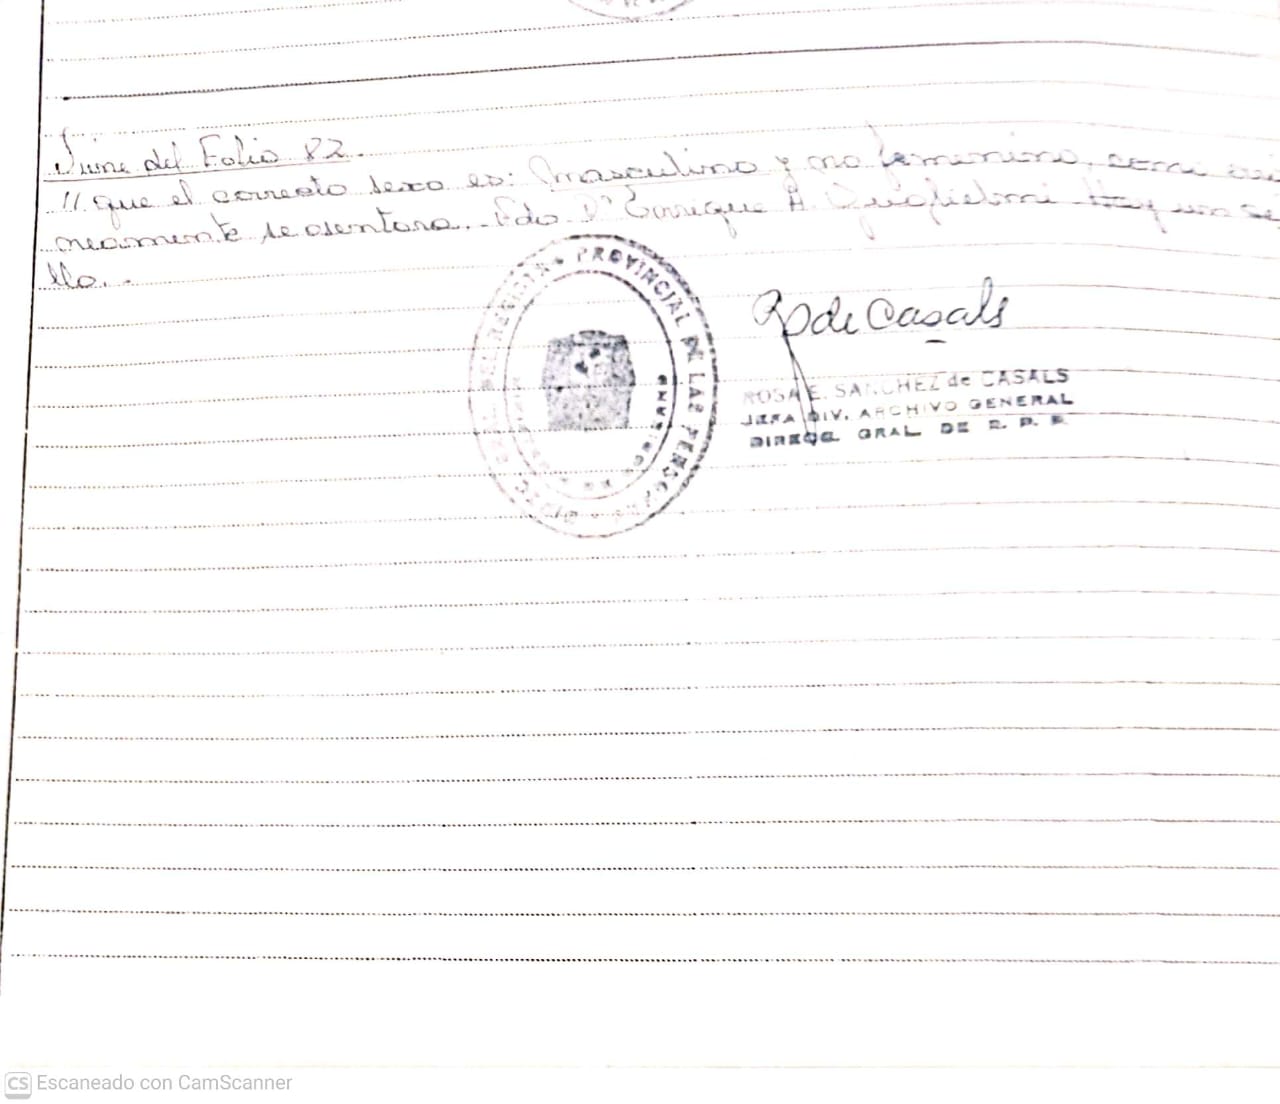 Viene del Folio 82.
// que el correcto sexo es: masculino y no femenino, como
neamente se asentara. - Fdo. Dr Enrique A. Guglielmi Hay un se
llo. -
PROVINCIAL DE LAS PERSONAS
R de Casals
ROSA E. SANCHEZ de CASALS
JEFA DIV. ARCHIVO GENERAL
DIRECC. GRAL DE R. P. P.
CS Escaneado con CamScanner